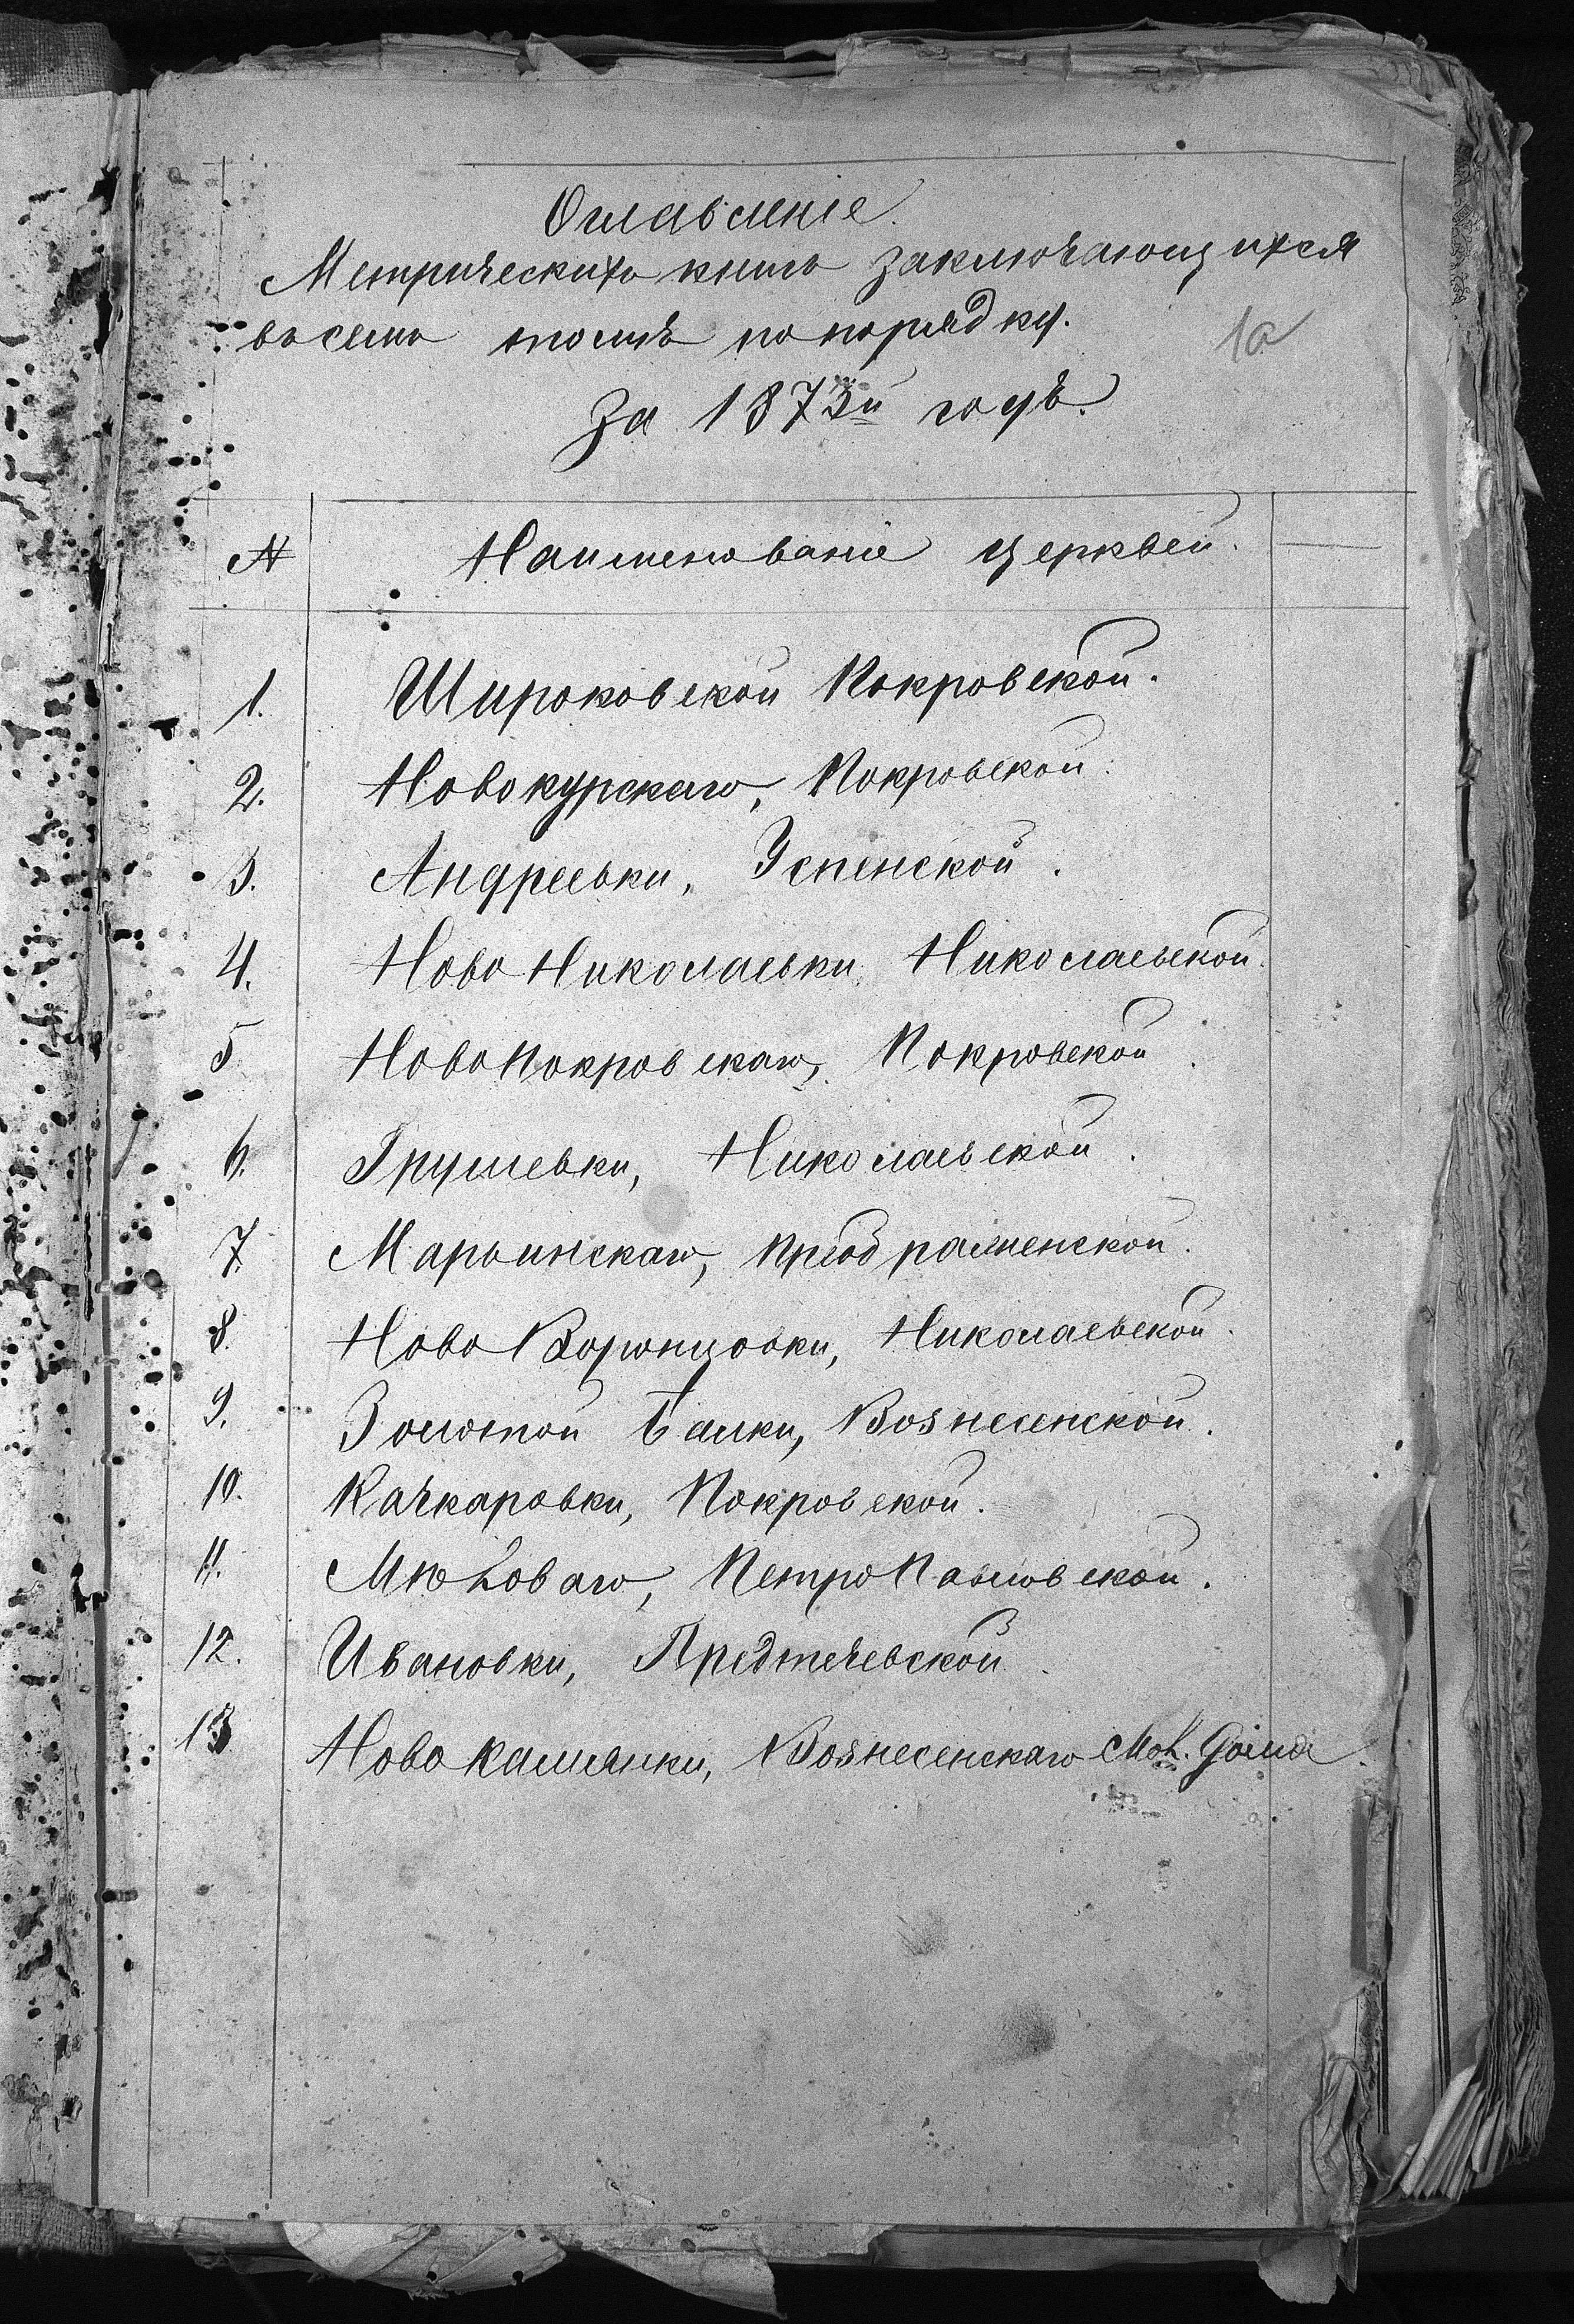 Оглавленіе.
Метрическихъ книгъ заключающихся
въ семъ томѣ по порядку.
1а
За 1873й годъ.
№ Наименованіе церквей.
1. Широковской Покровской.
2. Новокурскаго, Покровской.
3. Андреевки, Успенской.
4. Ново Николаевки Николаевской.
5 Новопокровскаго, Покровской.
6. Грушевки, Николаевской.
7. Марьинскаго, Преображенской.
8. Ново Воронцовки, Николаевской.
9. Золотой Балки, Вознесенской.
10. Качкаровки, Покровской.
11. Мѣловаго, ПетроПавловской.
12. Ивановки, Предтечевской.
13 Новокамянки, Вознесенскаго Мол. Дома.